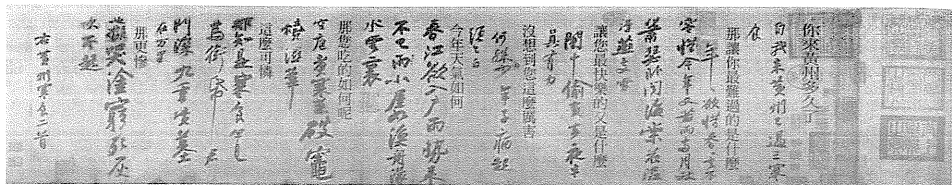 你來黃州多久了
自我來黃州已過三寒
食
那讓你最難過的是什麼
年〻欲惜春春去不
容惜今年又苦雨兩月秋
蕭瑟臥聞海棠花泥
汙燕支雪
讓您最快樂的又是什麼
闇中偷負去夜半
真有力
沒想到您這麼厲害
何殊少年子病起
今年天氣如何
春江欲入戶雨勢來
不已雨小屋如漁舟濛
水雲裏
那您吃的如何呢
空庖煮寒菜破竈
燒濕葦
這麼可憐
那知是寒食但見
烏銜帋君
門深九重墳墓
在万里
那更慘
也擬哭塗窮死灰
吹不起
右黃州寒食二首